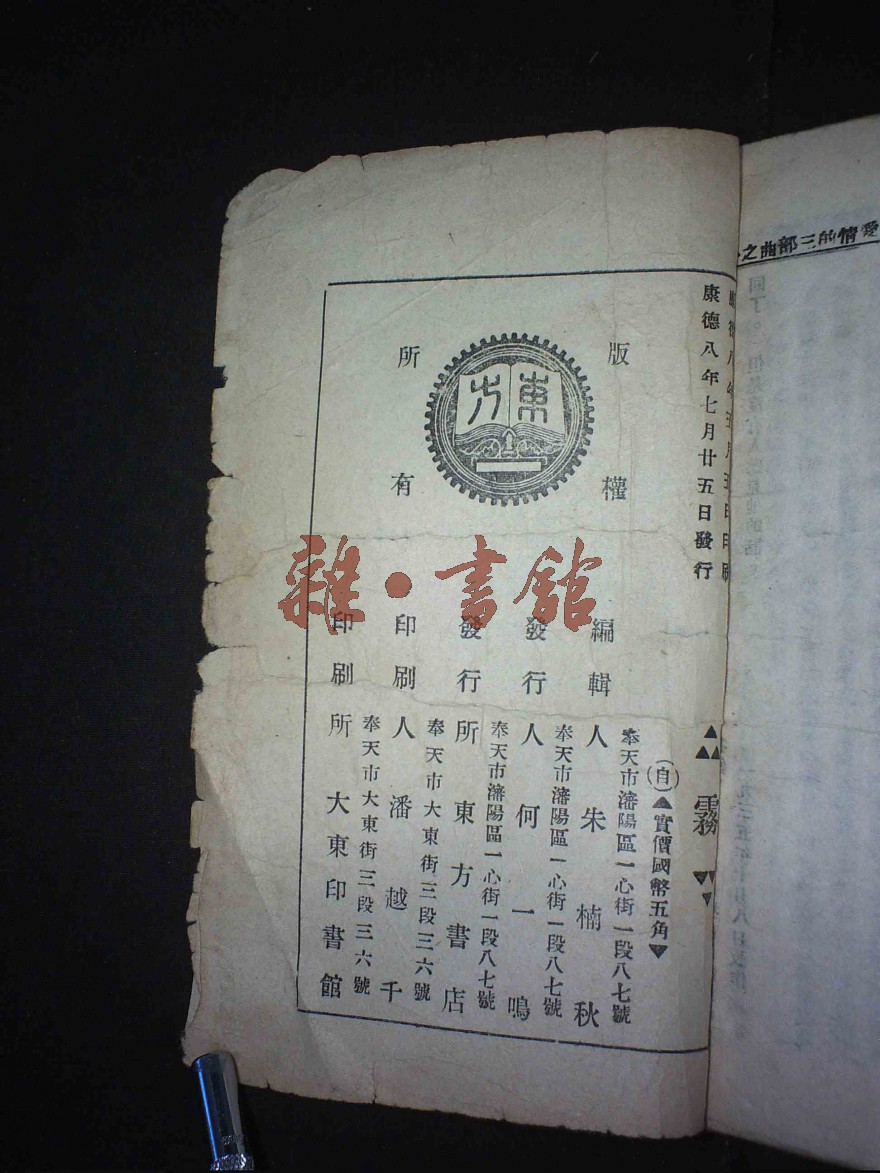 愛情的三部曲之
康德八年七月廿五日發行
版權所有
東方
霧
(自)▲實價國幣五角▼
奉天市瀋陽區一心街一段八七號
編輯人朱楠秋
奉天市瀋陽區一心街一段八七號
發行人何一鳴
奉天市瀋陽區一心街一段八七號
發行所東方書店
奉天市大東街三段三六號
印刷人潘越千
奉天市大東街三段三六號
印刷所大東印書館
雜·書館